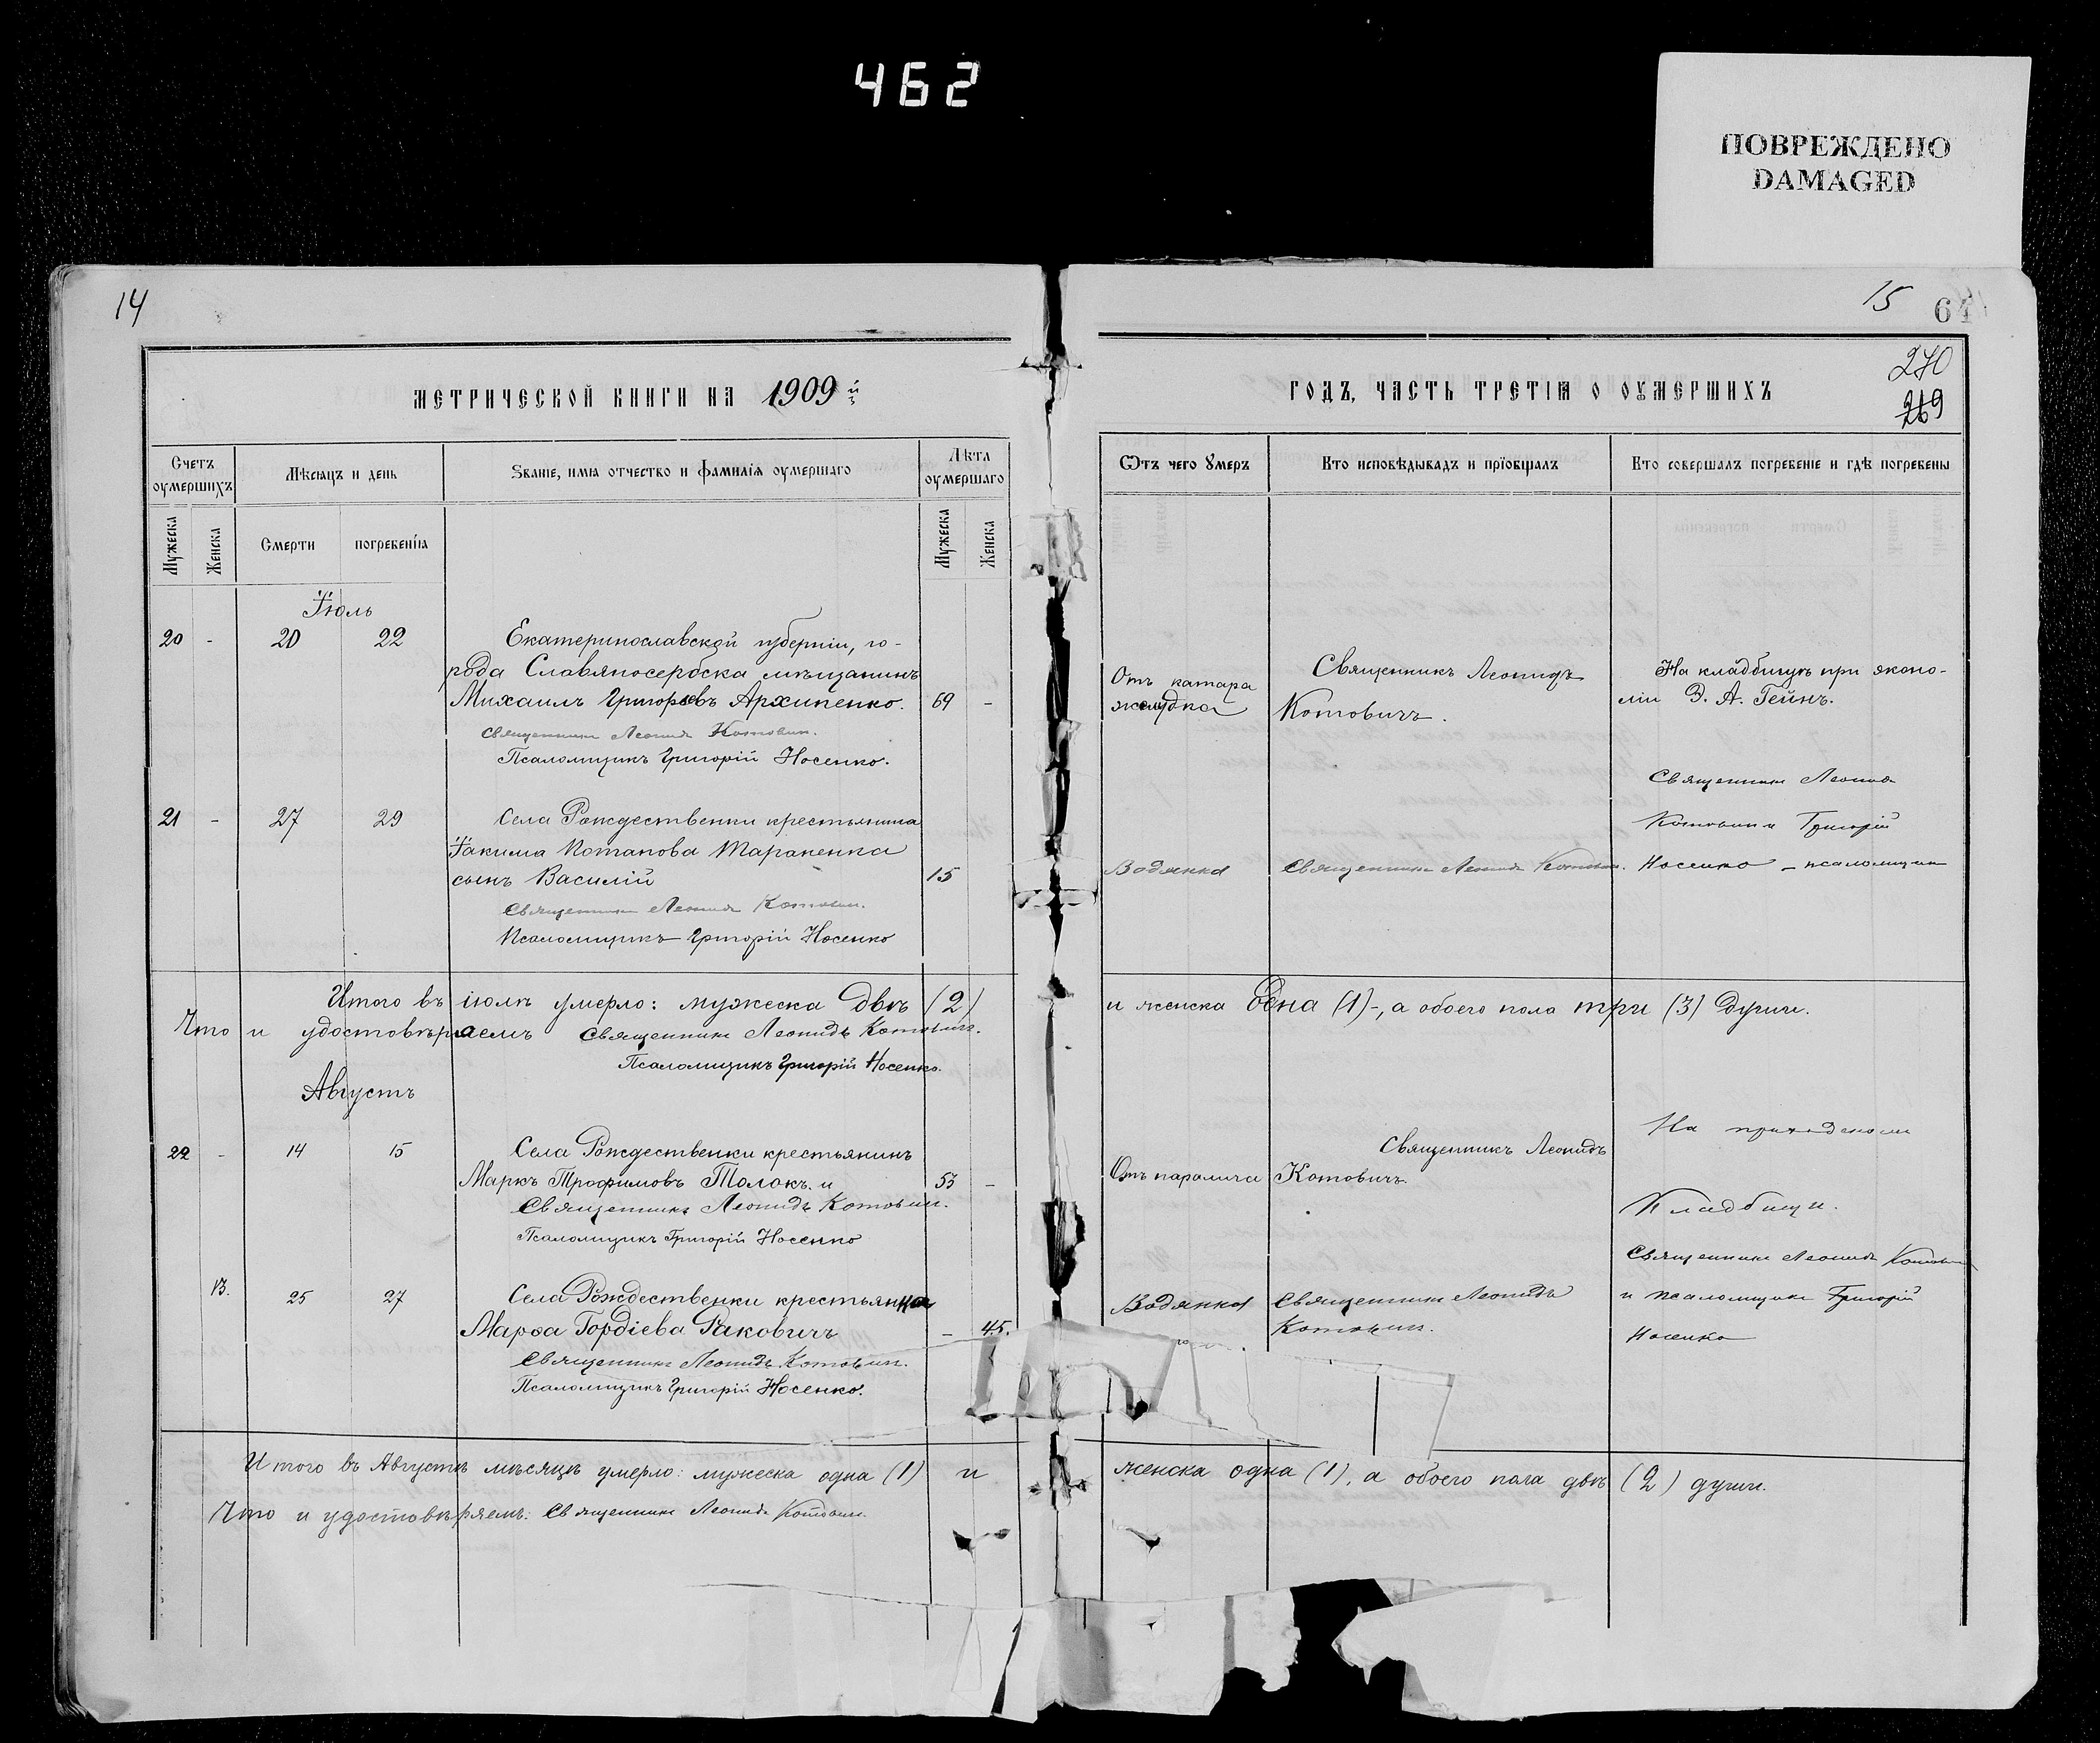 462
ПОВРЕЖДЕНО
DAMAGED
14
МЕТРИЧЕСКОЙ КНИГИ НА 1909й
Счетъ оумершихъ
Мѣсяцъ и день
Званіе, имя отчество и фамилія оумершаго
Лѣта оумершаго
Мужеска
Женска
Смерти
погребенія
Мужеска
Женска
Іюль
20 - 20 22 Екатеринославской губерніи, го-
рода Славяносербска мѣщанинъ
Михаилъ Григорьевъ Архипенко. 69 -
Священникъ Леонидъ Котович.
Псаломщикъ Григорій Носенко.
21 - 27 29 Села Рождественки крестьянина
Іакима Потапова Тараненка
сынъ Василій 15
Священникъ Леонидъ Котович.
Псаломщикъ Григорій Носенко
Итого въ іюлѣ умерло: мужеска двѣ (2)
Что и удостовѣряемъ Священникъ Леонидъ Котович.
Псаломщикъ Григорій Носенко.
Августъ
22 - 14 15 Села Рождественки крестьянинъ
Маркъ Трофимовъ 53 -
Священникъ Леонидъ Котович.
Псаломщикъ Григорій Носенко
13. 25 27 Села Рождественки крестьянка
Марѳа Гордіева Ракович - 45.
Священникъ Леонидъ Котович.
Псаломщикъ Григорій Носенко.
Итого въ Августѣ мѣсяцѣ умерло: мужеска одна (1) и
Что и удостовѣряемъ: Священникъ Леонидъ Котович.
15 64
270
269
ГОДЪ, ЧАСТЬ ТРЕТІЯ О ОУМЕРШИХЪ
Отъ чего умеръ
Кто исповѣдывалъ и пріобщалъ
Кто совершалъ погребеніе и гдѣ погребены
Отъ катара
желудка
Священникъ Леонидъ
Котовичъ.
На кладбищѣ при эконо-
міи Д. А. Гейнъ.
Священникъ Леонид
Котович и Григорій
Водянка Священникъ Леонидъ Котович. Носенко - псаломщик
и женска одна (1)-, а обоего пола три (3) души.
На приходском
Священникъ Леонидъ
Отъ паралича Котовичъ.
Кладбищи.
Священникъ Леонидъ Котович
Водянка Священникъ Леонидъ и псаломщикъ Григорій
Котович.
Носенко
женска одна (1), а обоего пола двѣ (2) души.